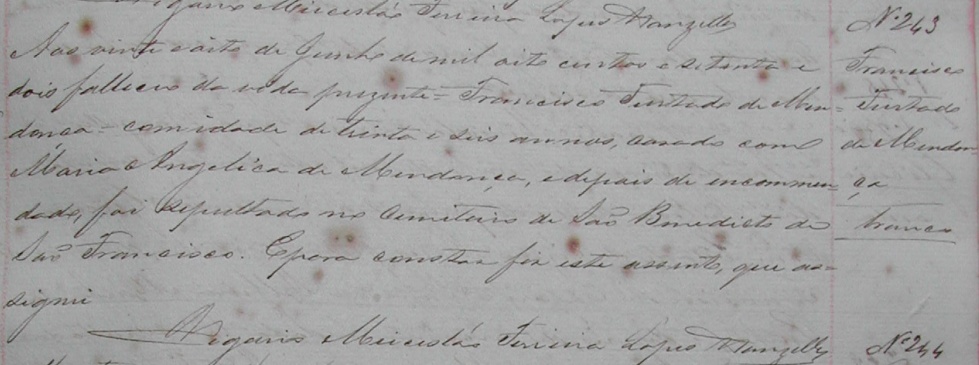 Vigario Miceslás Ferreira Lopes Wanzeller
Nº 243
Aos vinte e oito de Junho de mil oito centos e setenta e
dois falleceu da vida prezente = Francisco Furtado de Men=
donça = com idade de trinta e seis annos, casado com
Maria Angelica de Mendonça, e depois de encommen=
dado, foi sepultado no Cemiterio de São Benedicto de
São Francisco. E para constar fiz este assento, que as=
signei
Francisco
Furtado
de Mendon
ça
branco
Vigario Miceslás Ferreira Lopes Wanzeller
Nº 244